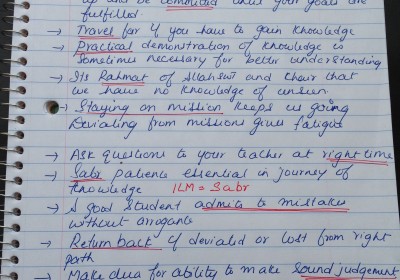 up and be committed until your goals are
fulfilled.
→ Travel far if you have to gain knowledge
→ Practical demonstration of knowledge is
sometimes necessary for better understanding
→ Its Rahmat of Allah swt and that
we have no knowledge of unseen.
→ Staying on mission keeps us going
Deviating from missions gives fatigue
→ Ask questions to your teacher at right time
→ Sabr patience essential in journey of
knowledge ILM = Sabr
→ A good student admits to mistakes
without arrogance
→ Return back if deviated or lost from right
path
→ Make dua for ability to make sound judgement